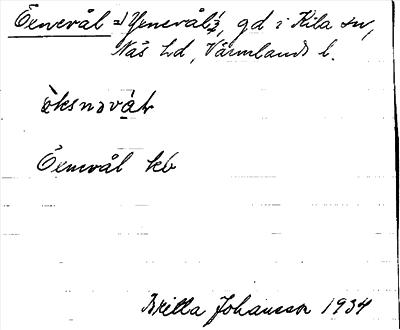 Exnevål =/ Yxnevål ¼, gd i Kila sn,
Näs hd, Värmlands l.
ö̀ksnəvál
Exnevål kb
Britta Johansson 1934